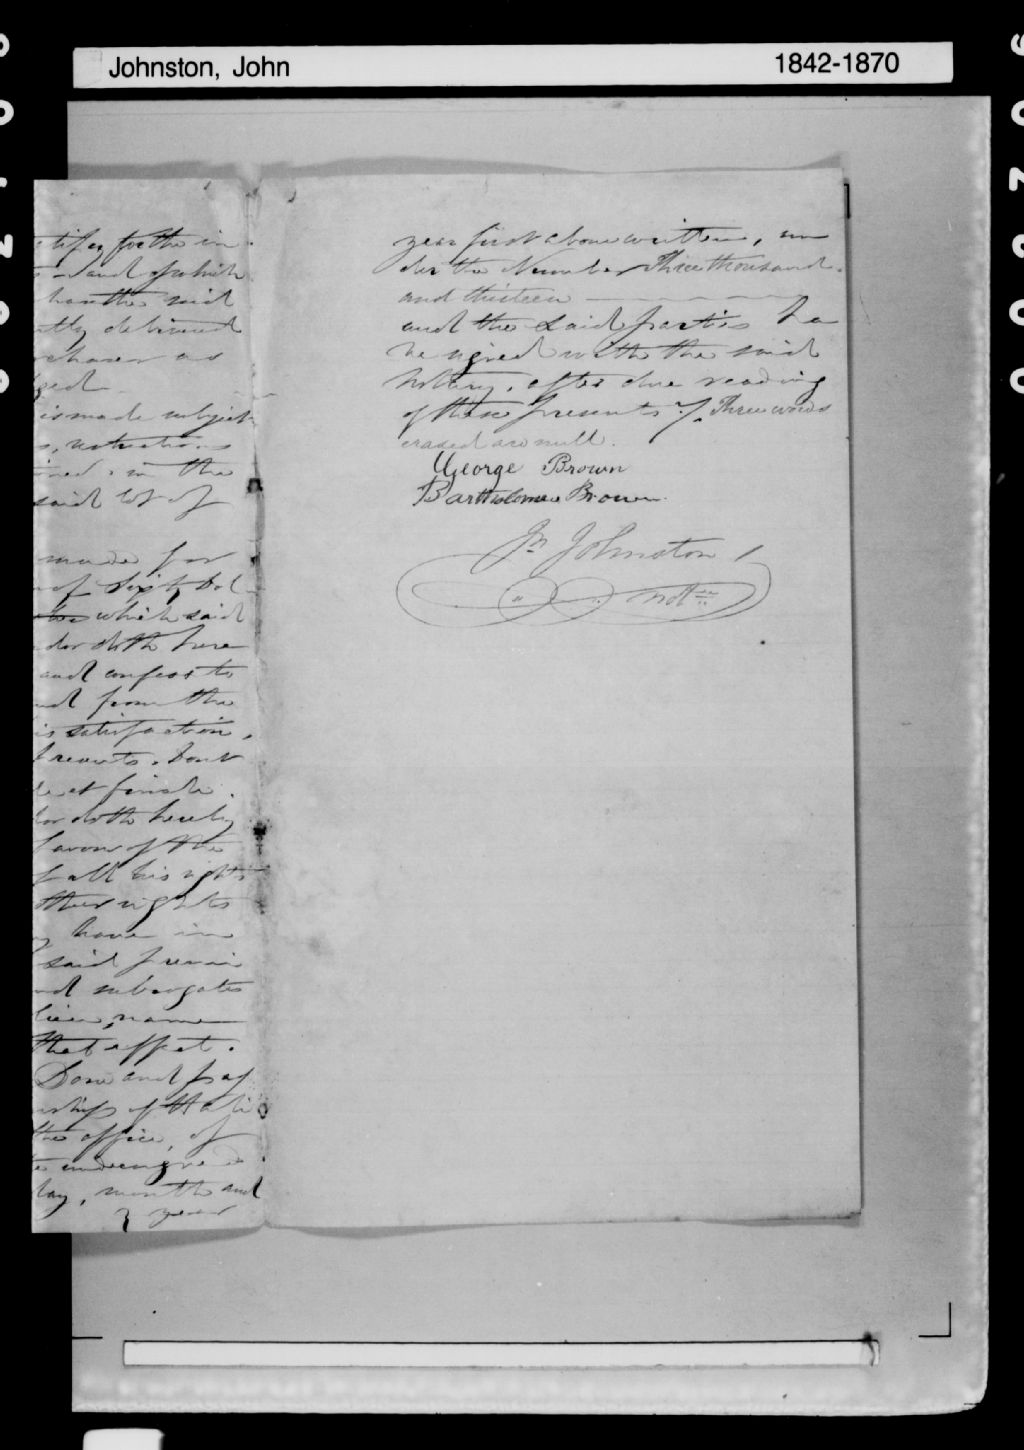 Johnston, John
1842-1870
tify forthe in
and of which
hanthe said
tly delivered
chaser as
ged
is made subject
s, restrictions
ined in the
said lot of
made for
of Sixty Dol
which said
dor doth here
and confess to
nd from the
is satisfaction,
presents. Dont
le et finale.
dor doth hereby
favour of the
f all his rights
other rights
y have in
said premi
nd subrogates
lieu, name
that effect.
Done and pas
nship of Hali
the office, of
e undersigned
day, month and
year
year first above written, un
der the Number Three thousand
and thirteen
and the said parties ha
ve signed with the said
Notary, after due reading
of these presents ./. Three words
erased are null.
George Brown
Bartholomew Brown
Jn Johnston
not